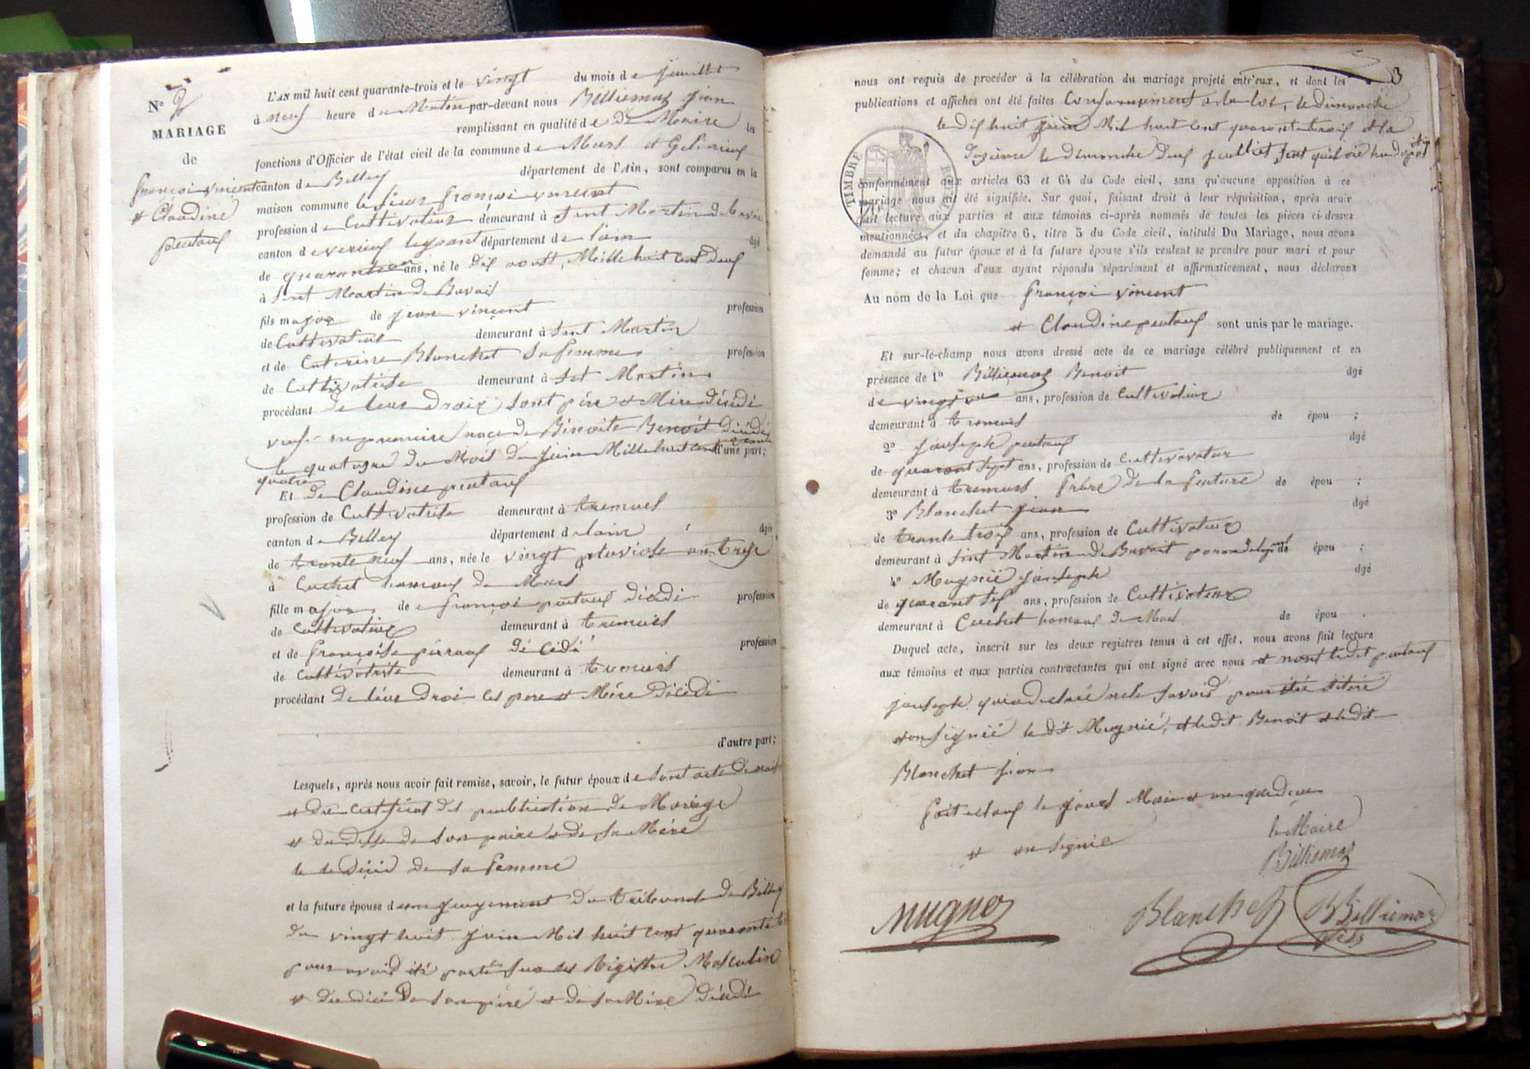 N° 2
MARIAGE
de
françoi vincent
et Claudine
putouf
L'AN mil huit cent quarante-trois et le vingt du mois de juillet
à neuf heure du Matin par-devant nous Billiemaz jean
remplissant en qualité de De Maire les
fonctions d'Officier de l'état civil de la commune de Murs et Gelinieux
canton de Belley département de l'Ain, sont comparus en la
maison commune le sieur françoi vincent
profession de Cultivateur demeurant à Sint Martin de bavai
canton de département de l'ain âgé
de ans, né le Dix aoust, Mille huit Cent Deux
à Sint Martin de Bavai
fils major de jean vincent profession
de Cultivateur demeurant à Sint Martin
et de Caterine Blanchet Sa femme profession
de Cultivatrise demeurant à Sint Martin
procédant de leur Droix Sont pére et Mére décédi
veuf en premiere noce de Bénoite Benoit Décédé
le quatorze du Mois de juin Mille huit cent trante d'une part;
quatre
Et de Claudine putouf
profession de Cultivatrise demeurant à tremurs
canton de Belley département de lain âgée
de trente neuf ans, née le vingt pluviose an treize
à Cuchet hameaux de Murs
fille major de françoi putouf décédi profession
de Cultivateur demeurant à tremurs
et de françoise pérrouf décédé profession
de Cultivatrise demeurant à tremurs
procédant de léur Droi les pere et Mére Décédi
d'autre part;
Lesquels, après nous avoir fait remise, savoir, le futur époux de Sont acte de nais
et du certificat des publication de Mariage
et du desse de son paire et de sa Mére
le de Décé de sa femme
et la future épouse d'un jugement du tribunale de Belley
du vingt huit juin Mil huit cent quarante
pour avoir été porté sur les Régistre Masculin
et du décé de son péré et de sa Mére Décédé
3
nous ont requis de procéder à la célébration du mariage projeté entr'eux, et dont les
publications et affiches ont été faites Conformément a la loi, le dimanche
le dix huit juin Mil huit cent quarante trois et la
dezieme le dimanche Deux juilliet
conformément aux articles 63 et 64 du Code civil, sans qu'aucune opposition à ce
mariage nous ait été signifiée. Sur quoi, faisant droit à leur réquisition, après avoir
fait lecture aux parties et aux témoins ci-après nommés de toutes les pièces ci-dessus
mentionnées, et du chapitre 6, titre 5 du Code civil, intitulé Du Mariage, nous avons
demandé au futur époux et à la future épouse s'ils veulent se prendre pour mari et pour
femme; et chacun d'eux ayant répondu séparément et affirmativement, nous déclarons
TIMBRE ROYAL
Au nom de la Loi que françoi vincent
et Claudine putouf sont unis par le mariage.
Et sur-le-champ nous avons dressé acte de ce mariage célébré publiquement et en
présence de 1° Billiemaz Benoit âgé
de ans, profession de Cultivateur
demeurant à tremurs de épou ;
2° jauseph putouf âgé
de quarant sept ans, profession de Cultivavateur
demeurant à tremurs frére de la future de épou ;
3° Blanchet jean âgé
de trante trois ans, profession de Cultivateur
demeurant à Sint Martin de Bavait de épou ;
4° Mugnié jauseph âgé
de ans, profession de Cultivateur
demeurant à Cuchet hameaux de Murs de épou .
Duquel acte, inscrit sur les deux registres tenus à cet effet, nous avons fait lecture
aux témoins et aux parties contractantes qui ont signé avec nous et nont ledit putouf
jauseph qui a declaré ne le savoir pour
et on Signié le dit Mugnié, et ledit Benoit et ledit
Blanchet jean
fait et clauf le jour Mois et an que desu
et on signié
le Maire
Billiemaz
Mugnier
Blanchet
B Billiemaz